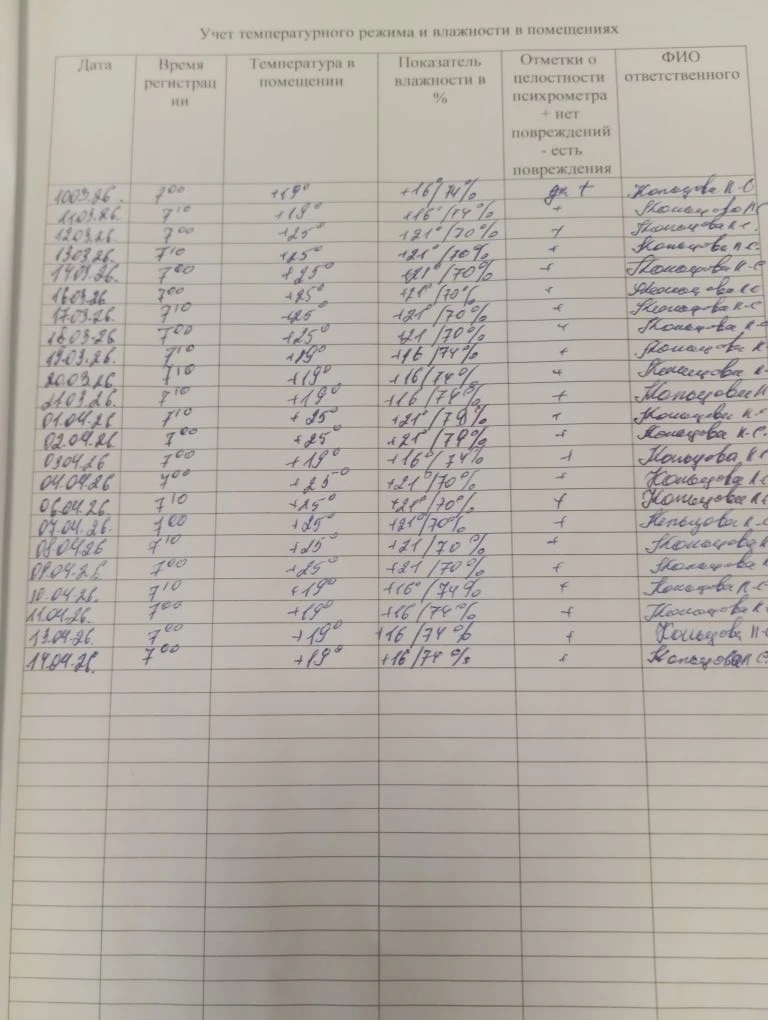 Учет температурного режима и влажности в помещениях
Дата Время регистрации Температура в помещении Показатель влажности в % Отметки о целостности психрометра + нет повреждений - есть повреждения ФИО ответственного
10.03.26. 7⁰⁰ +19° +16°/74% + Копьцова Н.С
11.03.26. 7¹⁰ +19° +16°/74% + Копьцова Н.С
12.03.26. 7⁰⁰ +25° +21°/70% + Копьцова Н.С.
13.03.26. 7¹⁰ +25° +21°/70% + Копьцова Н.С.
14.03.26. 7⁰⁰ +25° +21°/70% + Копьцова Н.С
16.03.26 7⁰⁰ +25° +21°/70% + Копьцова Н.С
17.03.26. 7¹⁰ +25° +21°/70% + Копьцова Н.С
18.03.26. 7⁰⁰ +25° +21/70% + Копьцова Н.С
19.03.26. 7¹⁰ +19° +16/74% + Копьцова Н.
20.03.26 7¹⁰ +19° +16/74% + Копьцова Н.
21.03.26 7¹⁰ +19° +16/74% + Копьцова Н
01.04.26. 7¹⁰ +25° +21°/79% + Копьцова Н.С
02.04.26. 7⁰⁰ +25° +21°/79% + Копьцова Н.С.
03.04.26 7⁰⁰ +19° +16°/74% + Копьцова Н.С
04.04.26 7⁰⁰ +25° +21°/70% + Копьцова Н.С
06.04.26. 7¹⁰ +25° +21°/70% + Копьцова Н.С
07.04.26. 7⁰⁰ +25° +21°/70% + Копьцова Н.С
08.04.26 7¹⁰ +25° +21/70% + Копьцова Н
09.04.26. 7⁰⁰ +25° +21/70% + Копьцова Н.
10.04.26. 7¹⁰ +19° +16°/74% + Копьцова Н.С
11.04.26. 7⁰⁰ +19° +16/74% + Копьцова Н.С
13.04.26. 7⁰⁰ +19° +16/74% + Копьцова Н.С
14.04.26. 7⁰⁰ +19° +16/74% + Копьцова Н С.